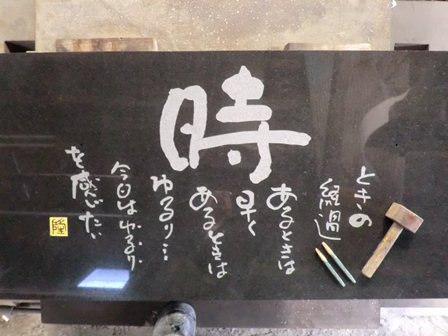 時
ときの
経過
あるときは
早く
あるときは
ゆるり…
今日はゆるり
を感じたい